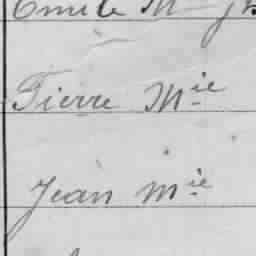 Emile M
Pierre M.ie
Jean M.ie